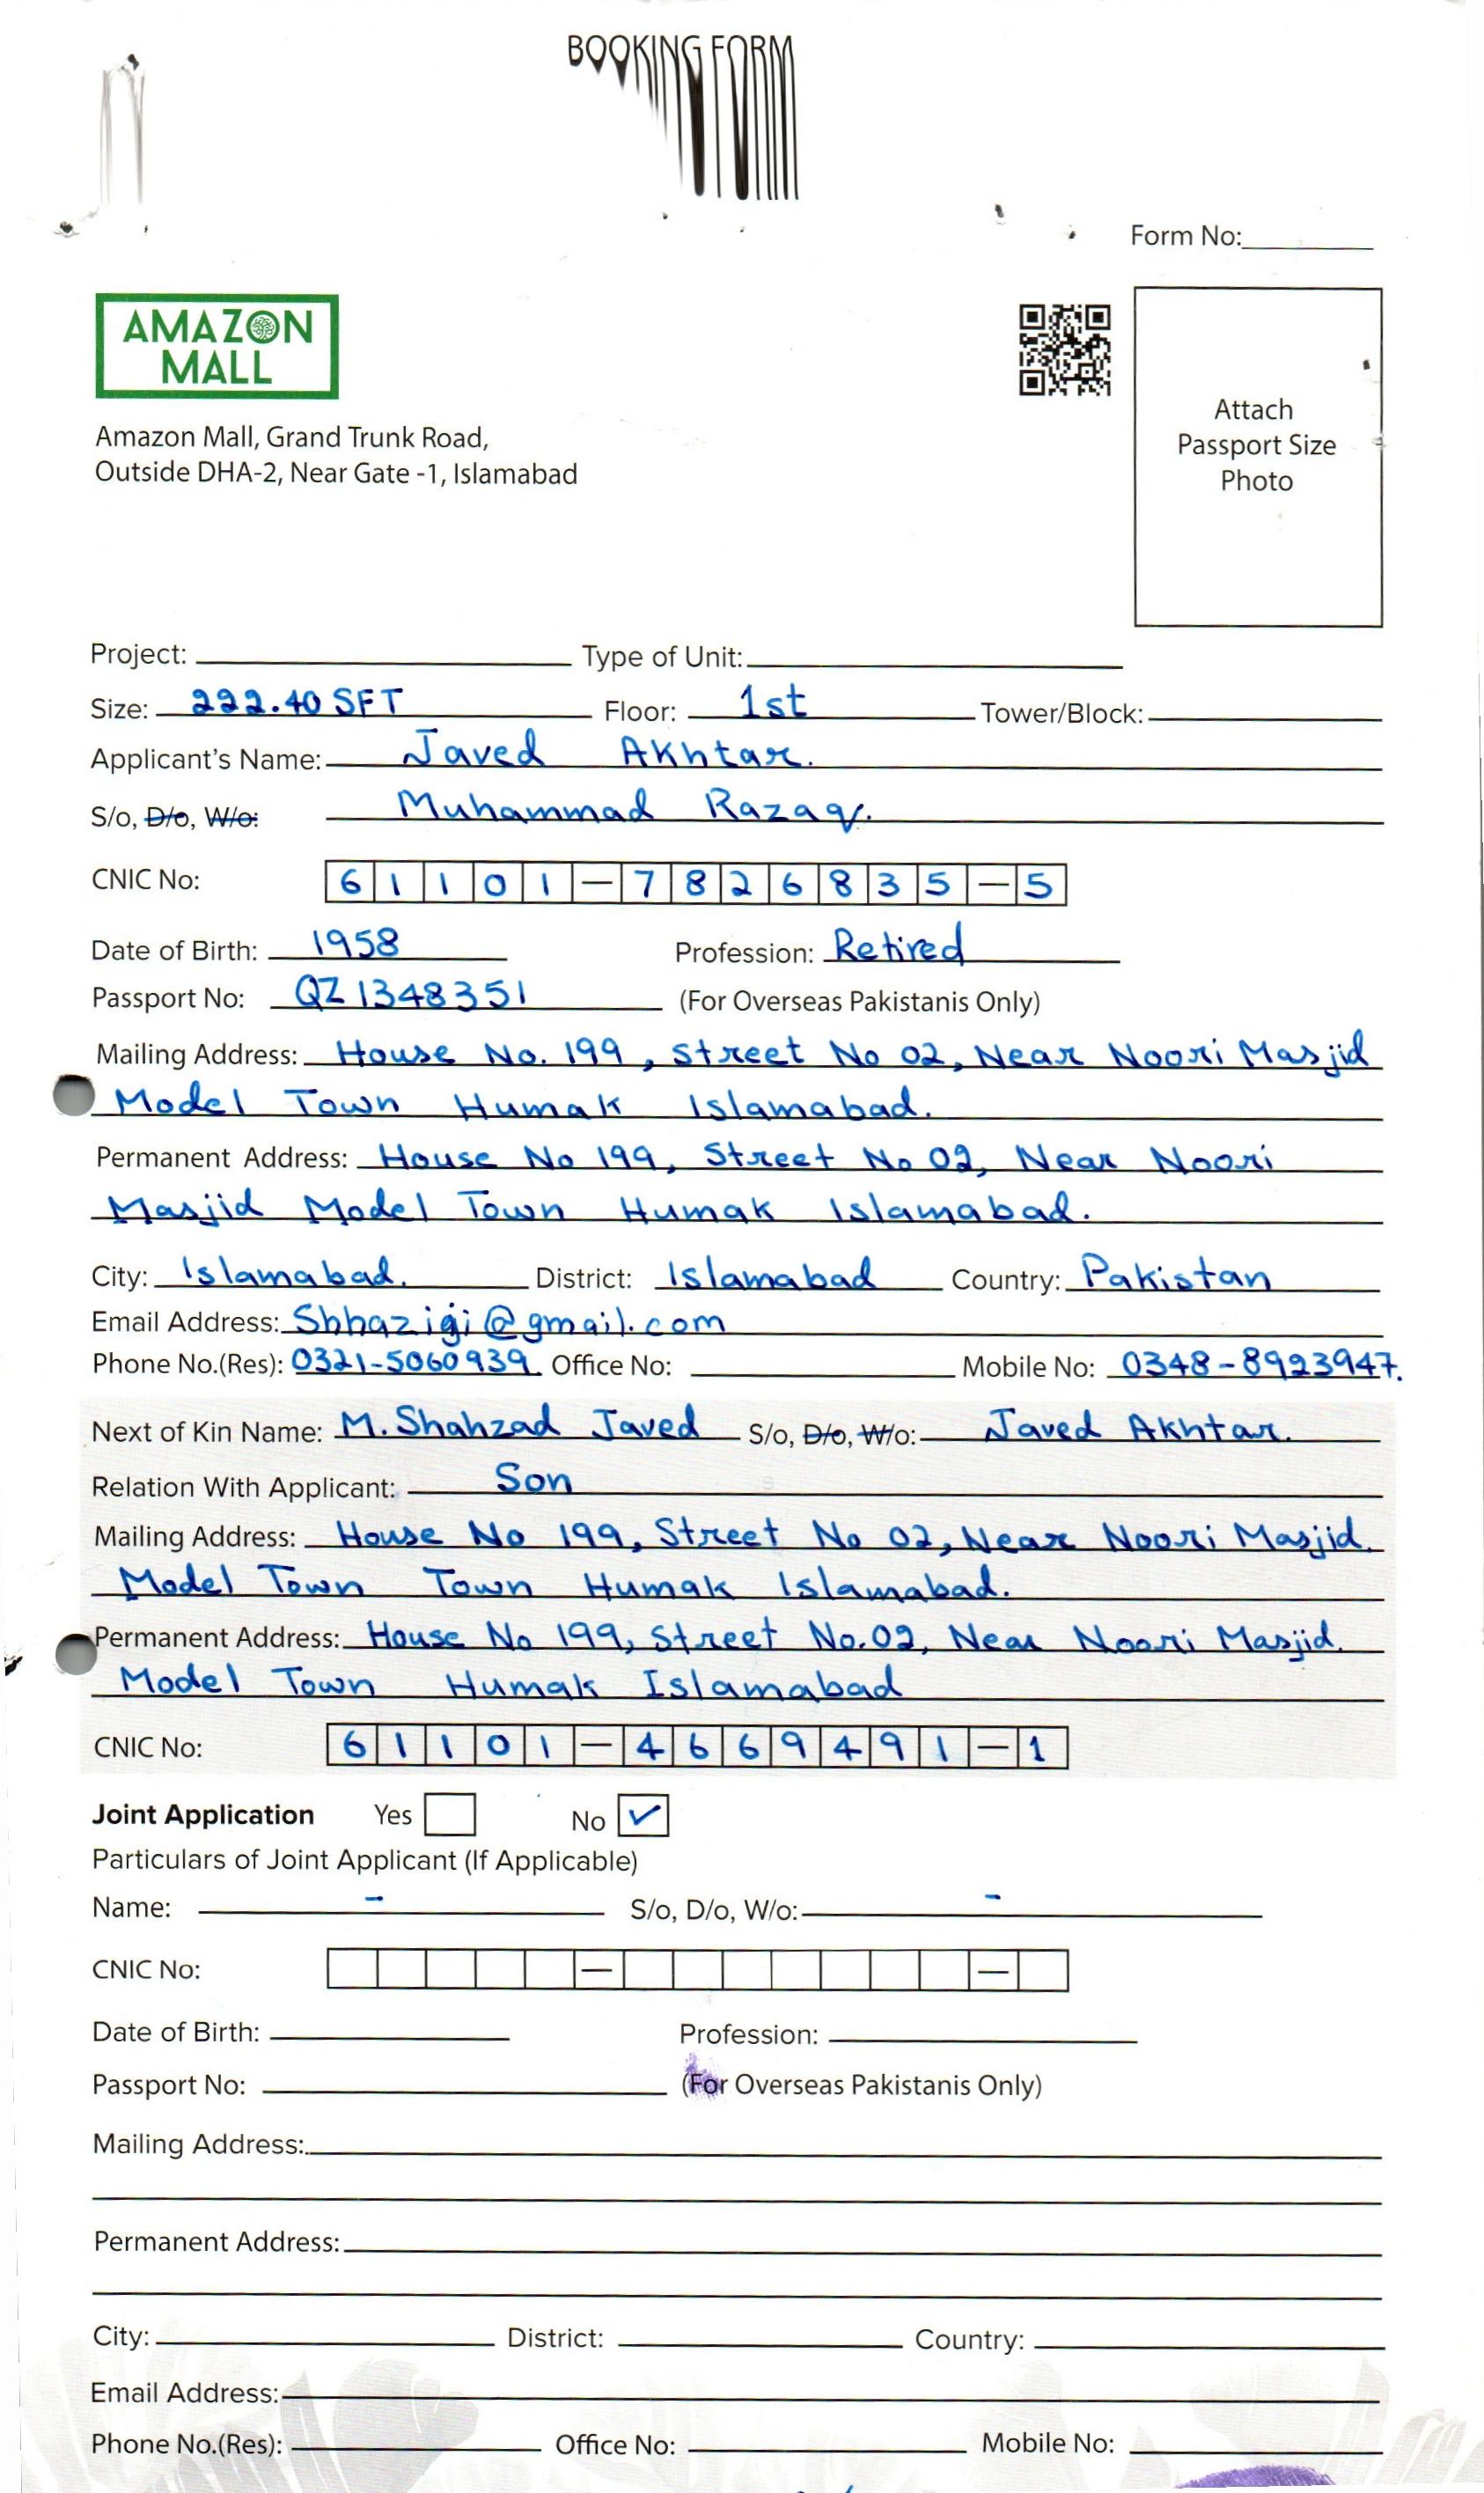 BOOKING FORM
Form No:
AMAZON
MALL
Amazon Mall, Grand Trunk Road,
Outside DHA-2, Near Gate -1, Islamabad
Attach
Passport Size
Photo
Project: Type of Unit:
Size: 222.40 SFT Floor: 1st Tower/Block:
Applicant's Name: Javed Akhtar.
S/o, D/o, W/o: Muhammad Razaq.
CNIC No: 61101-7826835-5
Date of Birth: 1958 Profession: Retired
Passport No: QZ1348351 (For Overseas Pakistanis Only)
Mailing Address: House No. 199, Street No 02, Near Noori Masjid
Model Town Humak Islamabad.
Permanent Address: House No 199, Street No 02, Near Noori
Masjid Model Town Humak Islamabad.
City: Islamabad. District: Islamabad Country: Pakistan
Email Address: Sbhazigi@gmail.com
Phone No.(Res): 0321-5060939. Office No: Mobile No: 0348-8923947.
Next of Kin Name: M. Shahzad Javed S/o, D/o, W/o: Javed Akhtar.
Relation With Applicant: Son
Mailing Address: House No 199, Street No 02, Near Noori Masjid.
Model Town Town Humak Islamabad.
Permanent Address: House No 199, Street No.02, Near Noori Masjid.
Model Town Humak Islamabad
CNIC No: 61101-4669491-1
Joint Application Yes No ✓
Particulars of Joint Applicant (If Applicable)
Name: - S/o, D/o, W/o: -
CNIC No: — —
Date of Birth: Profession:
Passport No: (For Overseas Pakistanis Only)
Mailing Address:
Permanent Address:
City: District: Country:
Email Address:
Phone No.(Res): Office No: Mobile No: